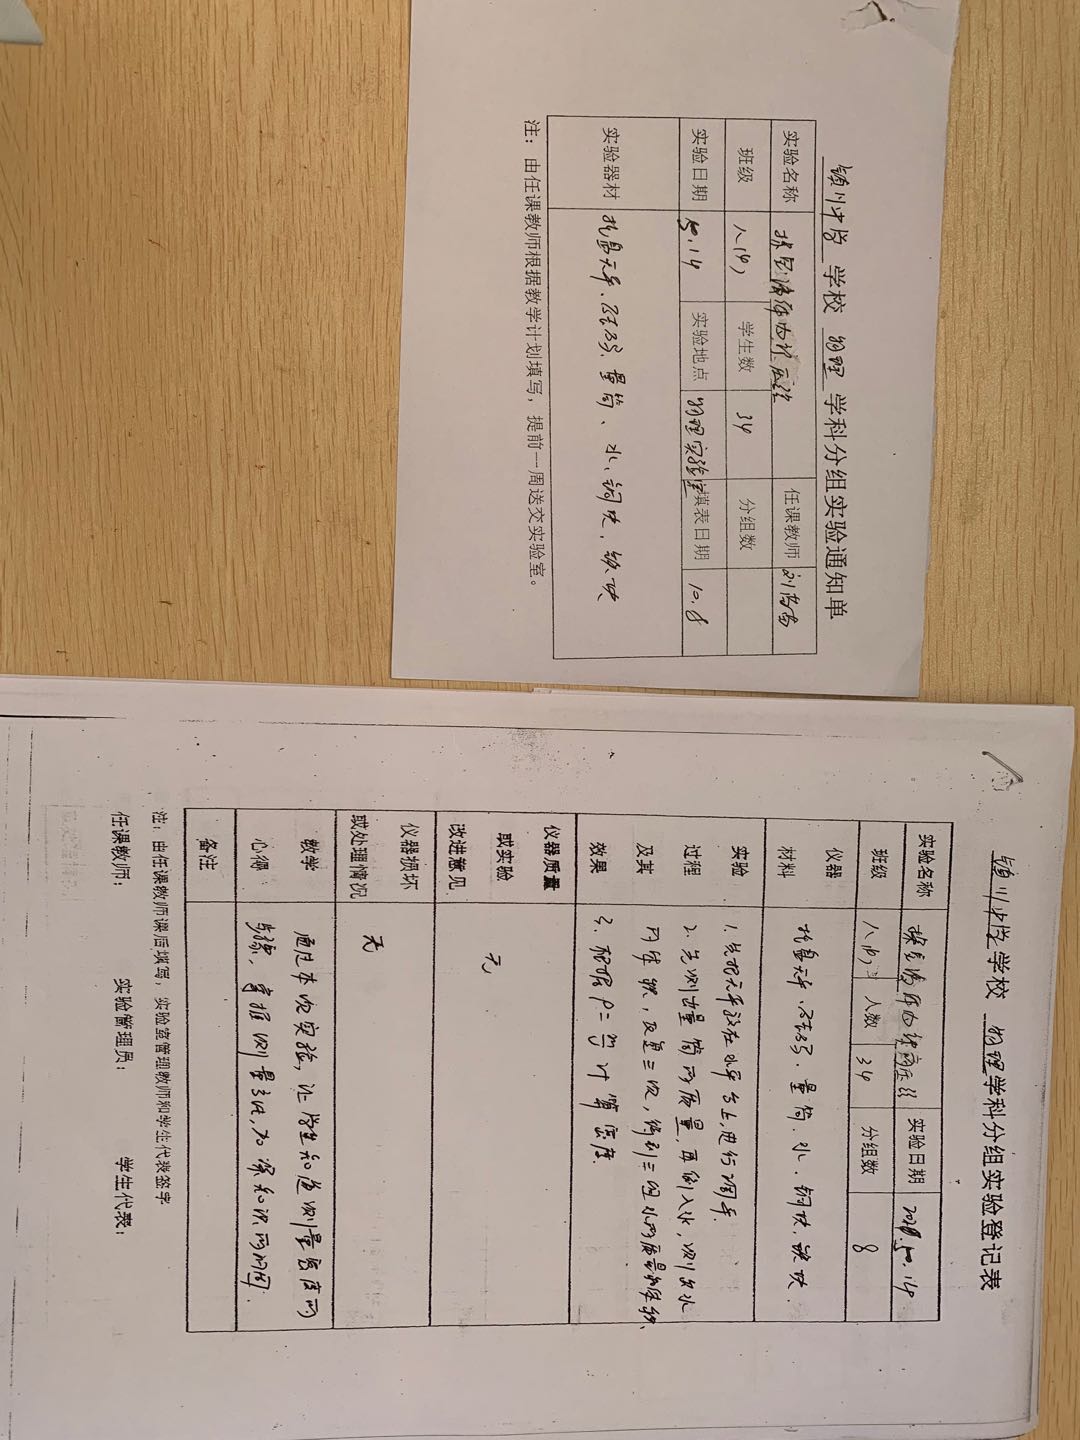 镇川中学 学校 物理 学科分组实验通知单
实验名称 任课教师
班级 八(4) 学生数 34 分组数
实验日期 10.14 实验地点 物理实验室 填表日期 10.8
实验器材 托盘天平、砝码、量筒、水、铜块、铁块
注: 由任课教师根据教学计划填写,提前一周送交实验室。
镇川中学 学校 物理 学科分组实验登记表
实验名称 实验日期 10.14
班级 人数 34 分组数 8
仪器材料 托盘天平、砝码、量筒、水、铜块、铁块
实验过程及其效果 1、先把天平放在水平台上,进行调平
2、先测出量筒的质量,再倒入水,测出水
的体积,反复三次,得到三组水的质量和体积、
3、根据ρ=m/v计算密度.
仪器质量或实验改进意见 无
仪器损坏或处理情况 无
教学心得 通过本次实验,让学生知道测量密度的
步骤,掌握测量方法,加深知识的巩固.
备注
注:由任课教师课后填写,实验室管理教师和学生代表签字
任课教师: 实验管理员: 学生代表: